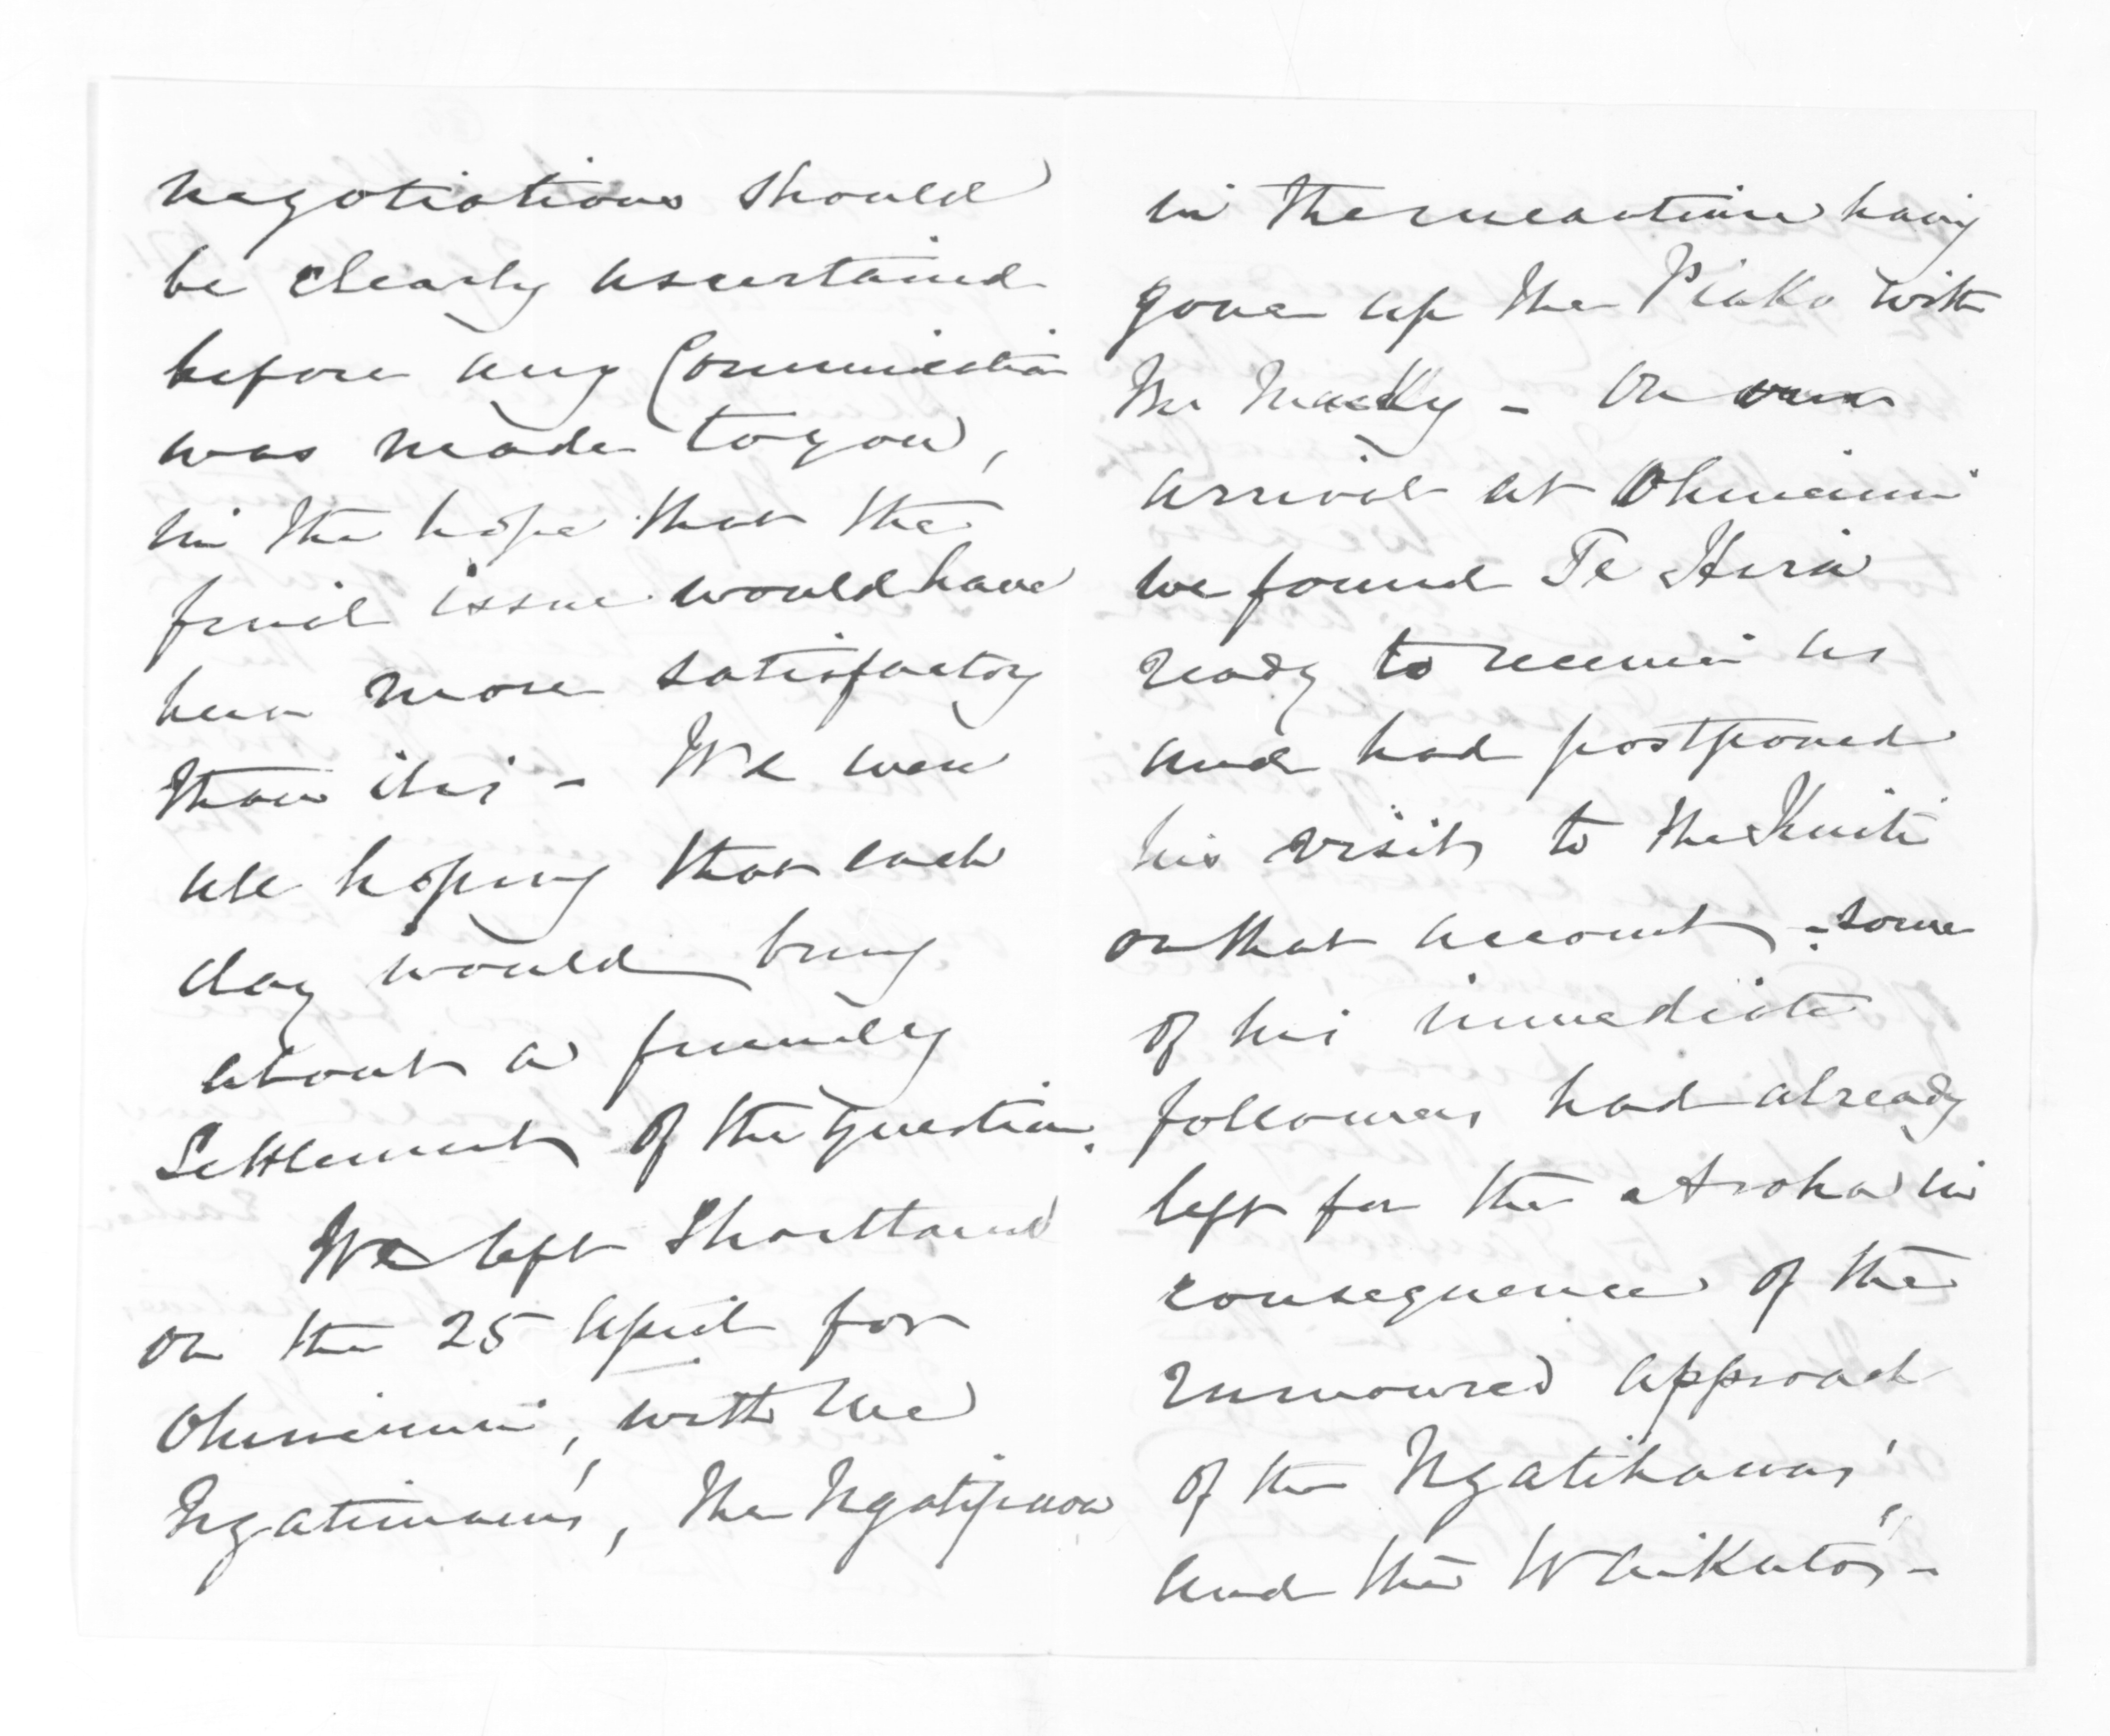 negotiations should
be clearly ascertained
before any Communication
was made to you,
in the hope that the
final issue would have
been more satisfactory
than it is - We were
all hoping that each
day would bring
about a friendly
Settlement of the question.
We left Shortland
on the 25 April for
Ohinemuri, with the
Ngatimaru's, the Ngatipaoa
in the meantime having
gone up the Piako with
Mr Mackay - On our
arrival at Ohinemuri
we found Te Hira
ready to receive us
and had postponed
his visit to the Kuiti
on that account - some
of his immediate
followers had already
left for the Aroha in
consequence of the
rumoured approach
of the Ngatihauas',
and the Waikatos -